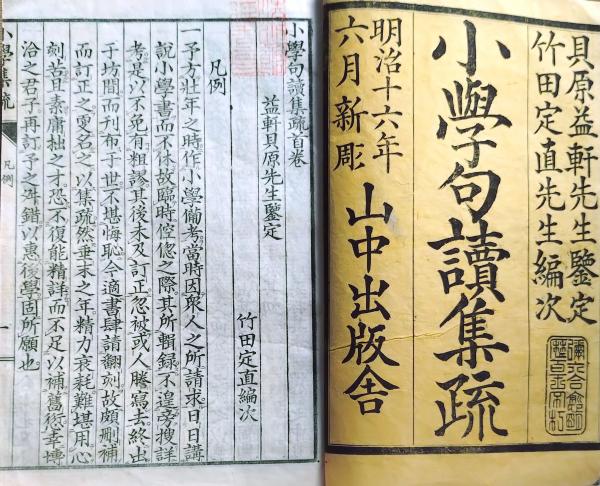 貝原益軒先生鑒定
竹田定直先生編次
小學句讀集疏
明治十六年
六月新彫
山中出版舎
小學句讀集疏首巻
益軒貝原先生鑒定
竹田定直編次
凡例
一予方壯年之時作小學備考當時因衆人之所請求日日講
說小學書而不休故臨時倥偬之際其所輯録不遑旁搜詳
考是以不免有粗謬其後未及訂正忽被或人謄寫去終出
于坊間而刊布于世不堪悔恥今適書肆請翻刻故頗刪補
而訂正之更名之以集疏然垂末之年精力衰耗難堪用心
刻苦且素庸拙之才恐不復能精詳而不足以補舊愆幸博
洽之君子再訂予之舛錯以惠後學固所願也
小學集疏
凡例
一